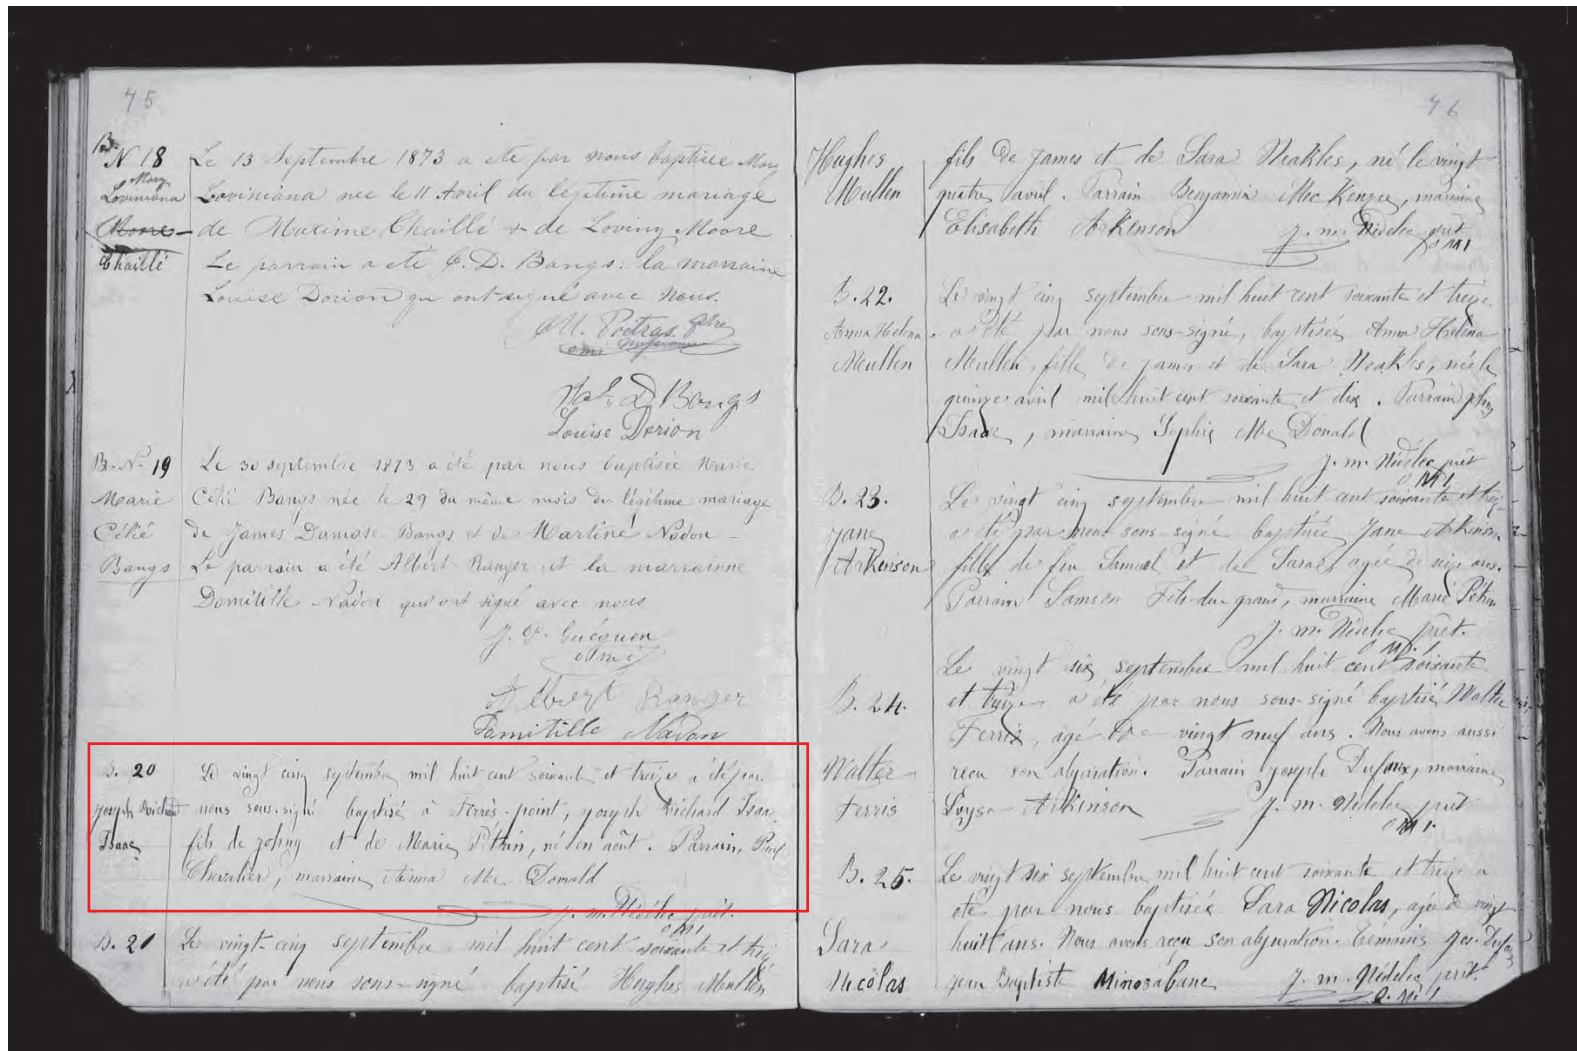 75
B.
N 18
Mary
Loviniana
Moore
Chaillé
Le 13 Septembre 1873 a ete par nous baptisée Mary
Loviniana nee le 11 Avril du légitime mariage
de Maxime Chaillé & de Loviny Moore
Le parrain a ete J. D. Bangs: la marraine
Louise Dorion qui ont signé avec nous.
Poitras Ptre
omi
D. Bangs
Louise Dorion
B. N. 19
Marie
Célié
Bangs
Le 30 septembre 1873 a été par nous baptisée Marie
Célié Bangs née le 29 du même mois du légitime mariage
de James Damase Bangs et de Martine Nadon
Le parrain a été Albert Ranger et la marrainne
Domitille Nadon qui ont signé avec nous
J. P. Guéguen
o m i
Albert Ranger
Domitille Nadon
B. 20
Joseph Richard
Isaac
Le vingt cinq septembre mil huit cent soixante et treize a été par
nous sous-signé baptisé à Ferris-point, joseph Richard Isaac
fils de johny et de Marie Pétrin, né en août. Parrain, Paul
Chevalier, marraine Anna Mc Donald
J. m. Nédélec prêt.
O M I
B. 21
Le vingt-cinq septembre mil huit cent soixante et treize
a été par nous sous-signé baptisé Hughes Mullen
76
Hughes
Mullen
fils de James et de Sara Neakles, né le vingt
quatre avril. Parrain Benjamin Mc Kenzee, marraine
Elisabeth Arkenson
J. m. Nédélec prêt
O M I
B. 22.
Anna Helena
Meullen
Le vingt cinq septembre mil huit cent soixante et treize
a été par nous sous-signé, baptisée Anna Helena
Meullen, fille de james et de Sara Neakles, née le
quinze avril mil huit cent soixante et dix. Parrain johny
Isaac, marraine Sophie Mc Donald
J. m. Nédélec prêt
O M I
B. 23.
Jane
Arkenson
Le vingt cinq septembre mil huit cent soixante et treize
a été par nous sous-signé baptisée Jane Arkenson
fille de feu Samuel et de Sara, agée de seize ans.
Parrain Samson Fils-du-grand, marraine Marie Pétrin
J. m. Nédélec prêt.
O M I
B. 24.
Walter
Ferris
Le vingt six septembre mil huit cent soixante
et treize a été par nous sous-signé baptisé Walter
Ferris, âgé de vingt neuf ans. Nous avons aussi
recu son abjuration. Parrain joseph Dufaux, marraine
Loysa Atkinson
J. m. Nédélec prêt
O M I
B. 25.
Sara
Nicolas
Le vingt six septembre mil huit cent soixante et treize a
été par nous baptisée Sara Nicolas, agée de vingt
huit ans. Nous avons reçu son abjuration. Temoins Jos. Dufaux
jean Baptiste Minosabane
J. m. Nédélec prêt.
O. M I